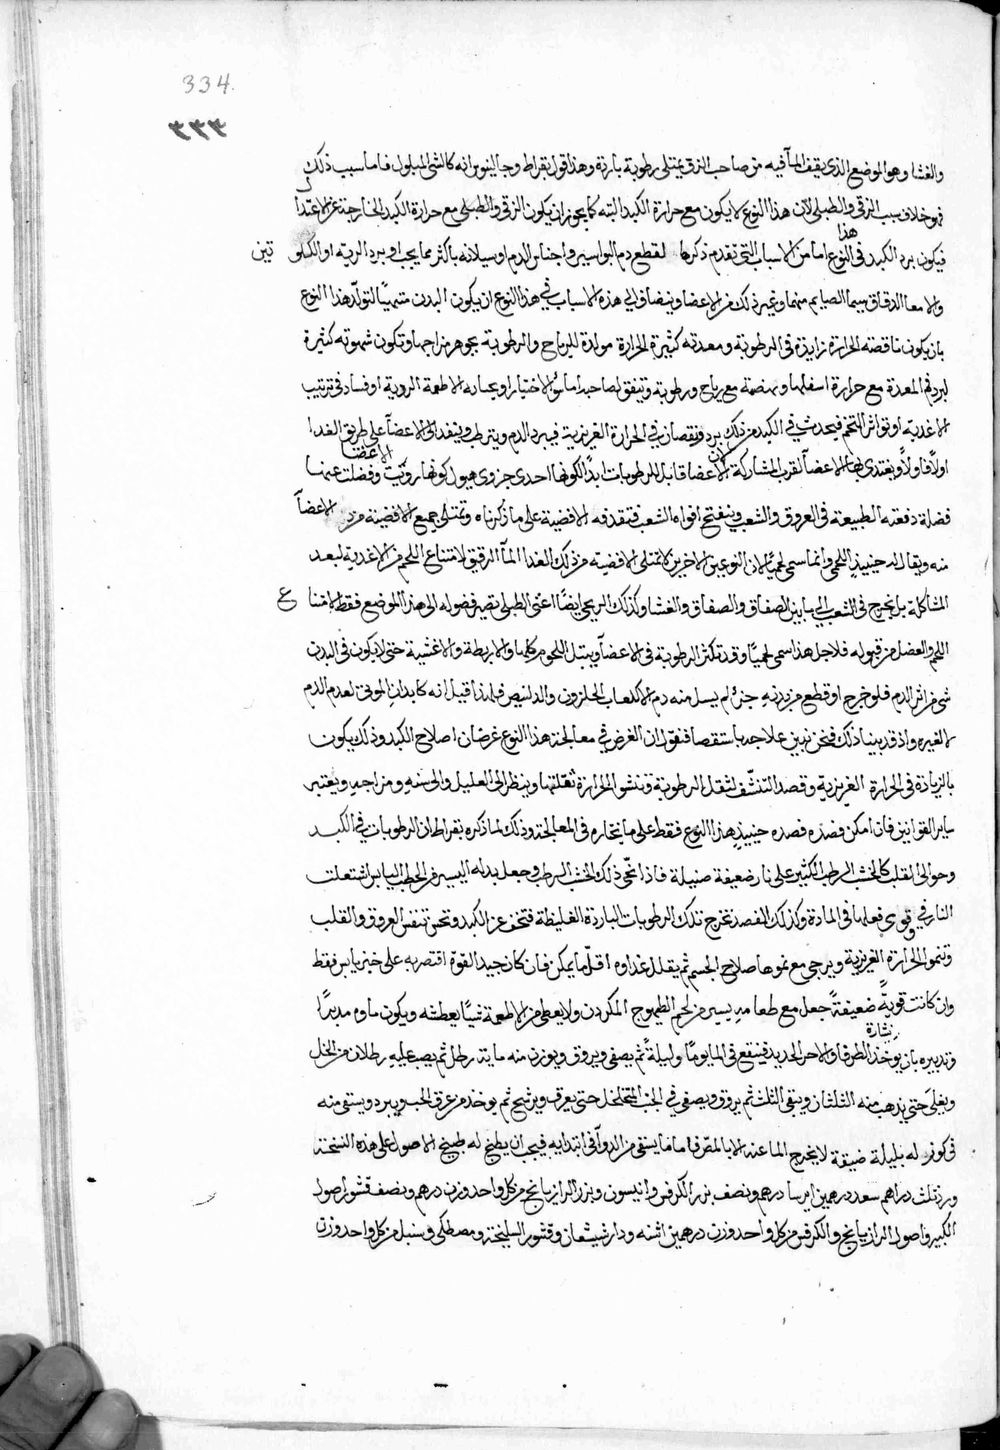 334.
٣٣٣
والغشا وهو الموضع الذى يقف المآ فيه من صاحب الزق يمتلى رطوبة باردة وهذا قول بقراط وجالينوس انه كالشى المبلول فاما سبب ذلك
فهو خلاف سبب الزقى والطبلى لان هذا النوع لا يكون مع حرارة الكبد البته كما يجوز ان يكون الزقى والطبلى مع حرارة الكبد الخارجة عن الاعتدا ل
فيكون برد الكبد فى هذا النوع اما من الاسباب التى تقدم ذكرها لقطع دم البواسير واحتباس الدم او سيلانه باكثر مما يجب او برد الرية او الكلو تين
والامعا الدقاق سيما الصايم منها وغير ذلك من الاعضا وينضاف الى هذه الاسباب فى هذا النوع ان يكون البدن متهيئا لتولد هذا النوع
بان يكون ناقصة الحرارة زايدة فى الرطوبة ومعدته كثيرة الحرارة مولدة للرياح والرطوبة بجوهر مزاجها وتكون شهوته كثيرة
لبرد فم المعدة مع حرارة اسفلها وتهضمه مع رياح ورطوبة ويتفق لصاحبه اما سؤ الاختيار او بحسب الاطعمة الردية او فساد فى ترتيب
الاغذية او تواتر التخم فيحدث فى الكبد من ذلك برد ونقصان فى الحرارة الغريزية فيبرد الدم ويترطب وينفذ الى الاعضآ على طريق الغدا
اولا فاولا ويغتدى بها الاعضآ لقرب المشاركة لان الاعضا قابل للرطوبات ابدا لكونها احدى جزوى هيول كونها رويت وفضلت عنها الاعضا
فضلة دفعته الطبيعة فى العروق والشعب وينفتح افواه الشعب فتقذفه الافضية على ما ذكرناه وتمتلى جميع الافضية من الاعضآ
منه ويقال له حينيذ اللحمى وانما سمى لحميا لان النوعين الاخرين لا تمتلى الافضية من ذلك الغدا المآ الرقيق لامتناع اللحم من الاغدية لبعد
المشاكلة بل يخرج فى الشعب الى ما بين الصفاق والصفاق والغشا وكذلك الريحى ايضا اعنى الطبلى تصير فضوله الى هذا الموضع فقط لامتنا ع
اللحم والعضل من قبوله فلاجل هذا سمى لحميا وقد تكثر الرطوبة فى الاعضآ ويبتل اللحوم كلها والاربطة والاغشية حتى لا يكون فى البدن
شى من اثر الدم فلو خرج او قطع من بدنه جزء لم يسل منه دم الا كلعاب الحلزون والدلنيس فلهذا قيل انه كابدان الموتى لعدم الدم
لا لغيره واذ قد بينا ذلك فنحن نبين علاجه باستقصا فنقول ان الغرض فى معالجة هذا النوع غرضان اصلاح الكبد وذلك يكون
بالزيادة فى الحرارة الغريزية وقصد التنشّف لثقل الرطوبة وتنشو الحرارة تقلتها وينظر الى العليل والى سنه ومزاجه ويعتبر
ساير القوانين فان امكن فصده فصده حينيذ هذا النوع فقط على ما يختاره فى المعالجة وذلك لما ذكره بقراط ان الرطوبات فى الكبد
وحوالى القلب كالخشب الرطب الكثير على نار ضعيفة ضئيلة فاذا نحّى ذلك الخشب الرطب وجعل بدله اليسير من الحطب اليابس اشتعلت
النار وقوى فعلها فى المادة وكذلك الفصد يخرج تلك الرطوبات الباردة الغليظة فتخف عن الكبد ونحن تنفس العروق والقلب
وتنمو الحرارة الغريزية ويرجى مع نموها صلاح الجسم ثم يقلل غداوه اقل ما يمكن فان كان جيد القوة اقتصر به على خبز يابس فقط
وان كانت قوية ضعيفة جعل مع طعامه يسير من لحم الطيهوج المكردن ولا يعطى من الاطعمة شيئا يعطشه ويكون ماوه مدبرا
وتدبيره بان يوخذ نشارة الطرفا والاحر الجديد فينقع فى الما يوما وليلة ثم يصفى ويروق ويوزن منه ماية رطل ثم يصب عليه رطلان من الخل
ويغلى حتى يذهب منه الثلثان ويبقى الثلث ثم يروق ويصفى فى الجب المتخلخل حتى يعرق ويرشح ثم يوخذ من عرق الحب ويبرد ويسقى منه
فى كوز له بليلة ضيقة لا يخرج الما عنه الا بالمصّ فاما ما يسقى من الدوآ فى ابتدايه فيجب ان يطبخ له طبيخ الاصول على هذه النسخة
ورد ثلث دراهم سعد درهمين ايرسا درهم ونصف بزر الكرفس وانيسون وبزر الرازيانج من كل واحد وزن درهم ونصف قشور اصول
الكبر واصول الرازيانج والكرفس من كل واحد وزن درهمين اشنه ودارشيشعان وقشور السليخة ومصطكى وسنبل من كل واحد وزن